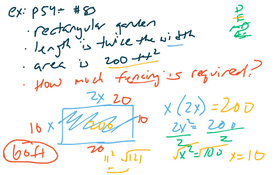 ex: p54: #80
• rectangular garden
• length is twice the width
• area is 200 ft²
• How much fencing is required?
2x 20
10 x 10
20
60 ft
11² √121
x(2x) = 200
2x² = 200
2 2
√x² = √100 x = 10